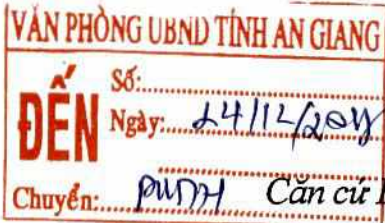 VĂN PHÒNG UBND TỈNH AN GIANG
ĐẾN
Số:
Ngày: 24/12/20
Chuyển:
Căn cứ